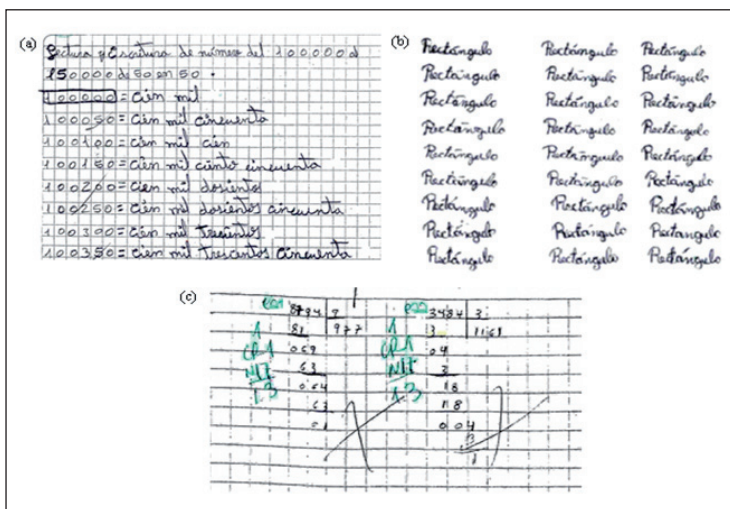 (a)
Lectura y Escritura de número del 100000 al
150000 de 50 en 50.
100000 = Cien mil
100050 = Cien mil cincuenta
100100 = Cien mil cien
100150 = Cien mil ciento cincuenta
100200 = Cien mil dosientos
100250 = Cien mil dosientos cincuenta
100300 = Cien mil trescientos
100350 = Cien mil trescientos cincuenta
(b)
Rectángulo Rectángulo Rectángulo
Rectángulo Rectángulo Rectángulo
Rectángulo Rectángulo Rectángulo
Rectángulo Rectángulo Rectángulo
Rectángulo Rectángulo Rectángulo
Rectángulo Rectángulo Rectángulo
Rectángulo Rectángulo Rectángulo
Rectángulo Rectángulo Rectángulo
Rectángulo Rectángulo Rectángulo
(c)
8794 9 3484 3
1 81 977 1 3 1161
069 04
63 3
1.3 064 1.3 18
63 18
01 004
3
1